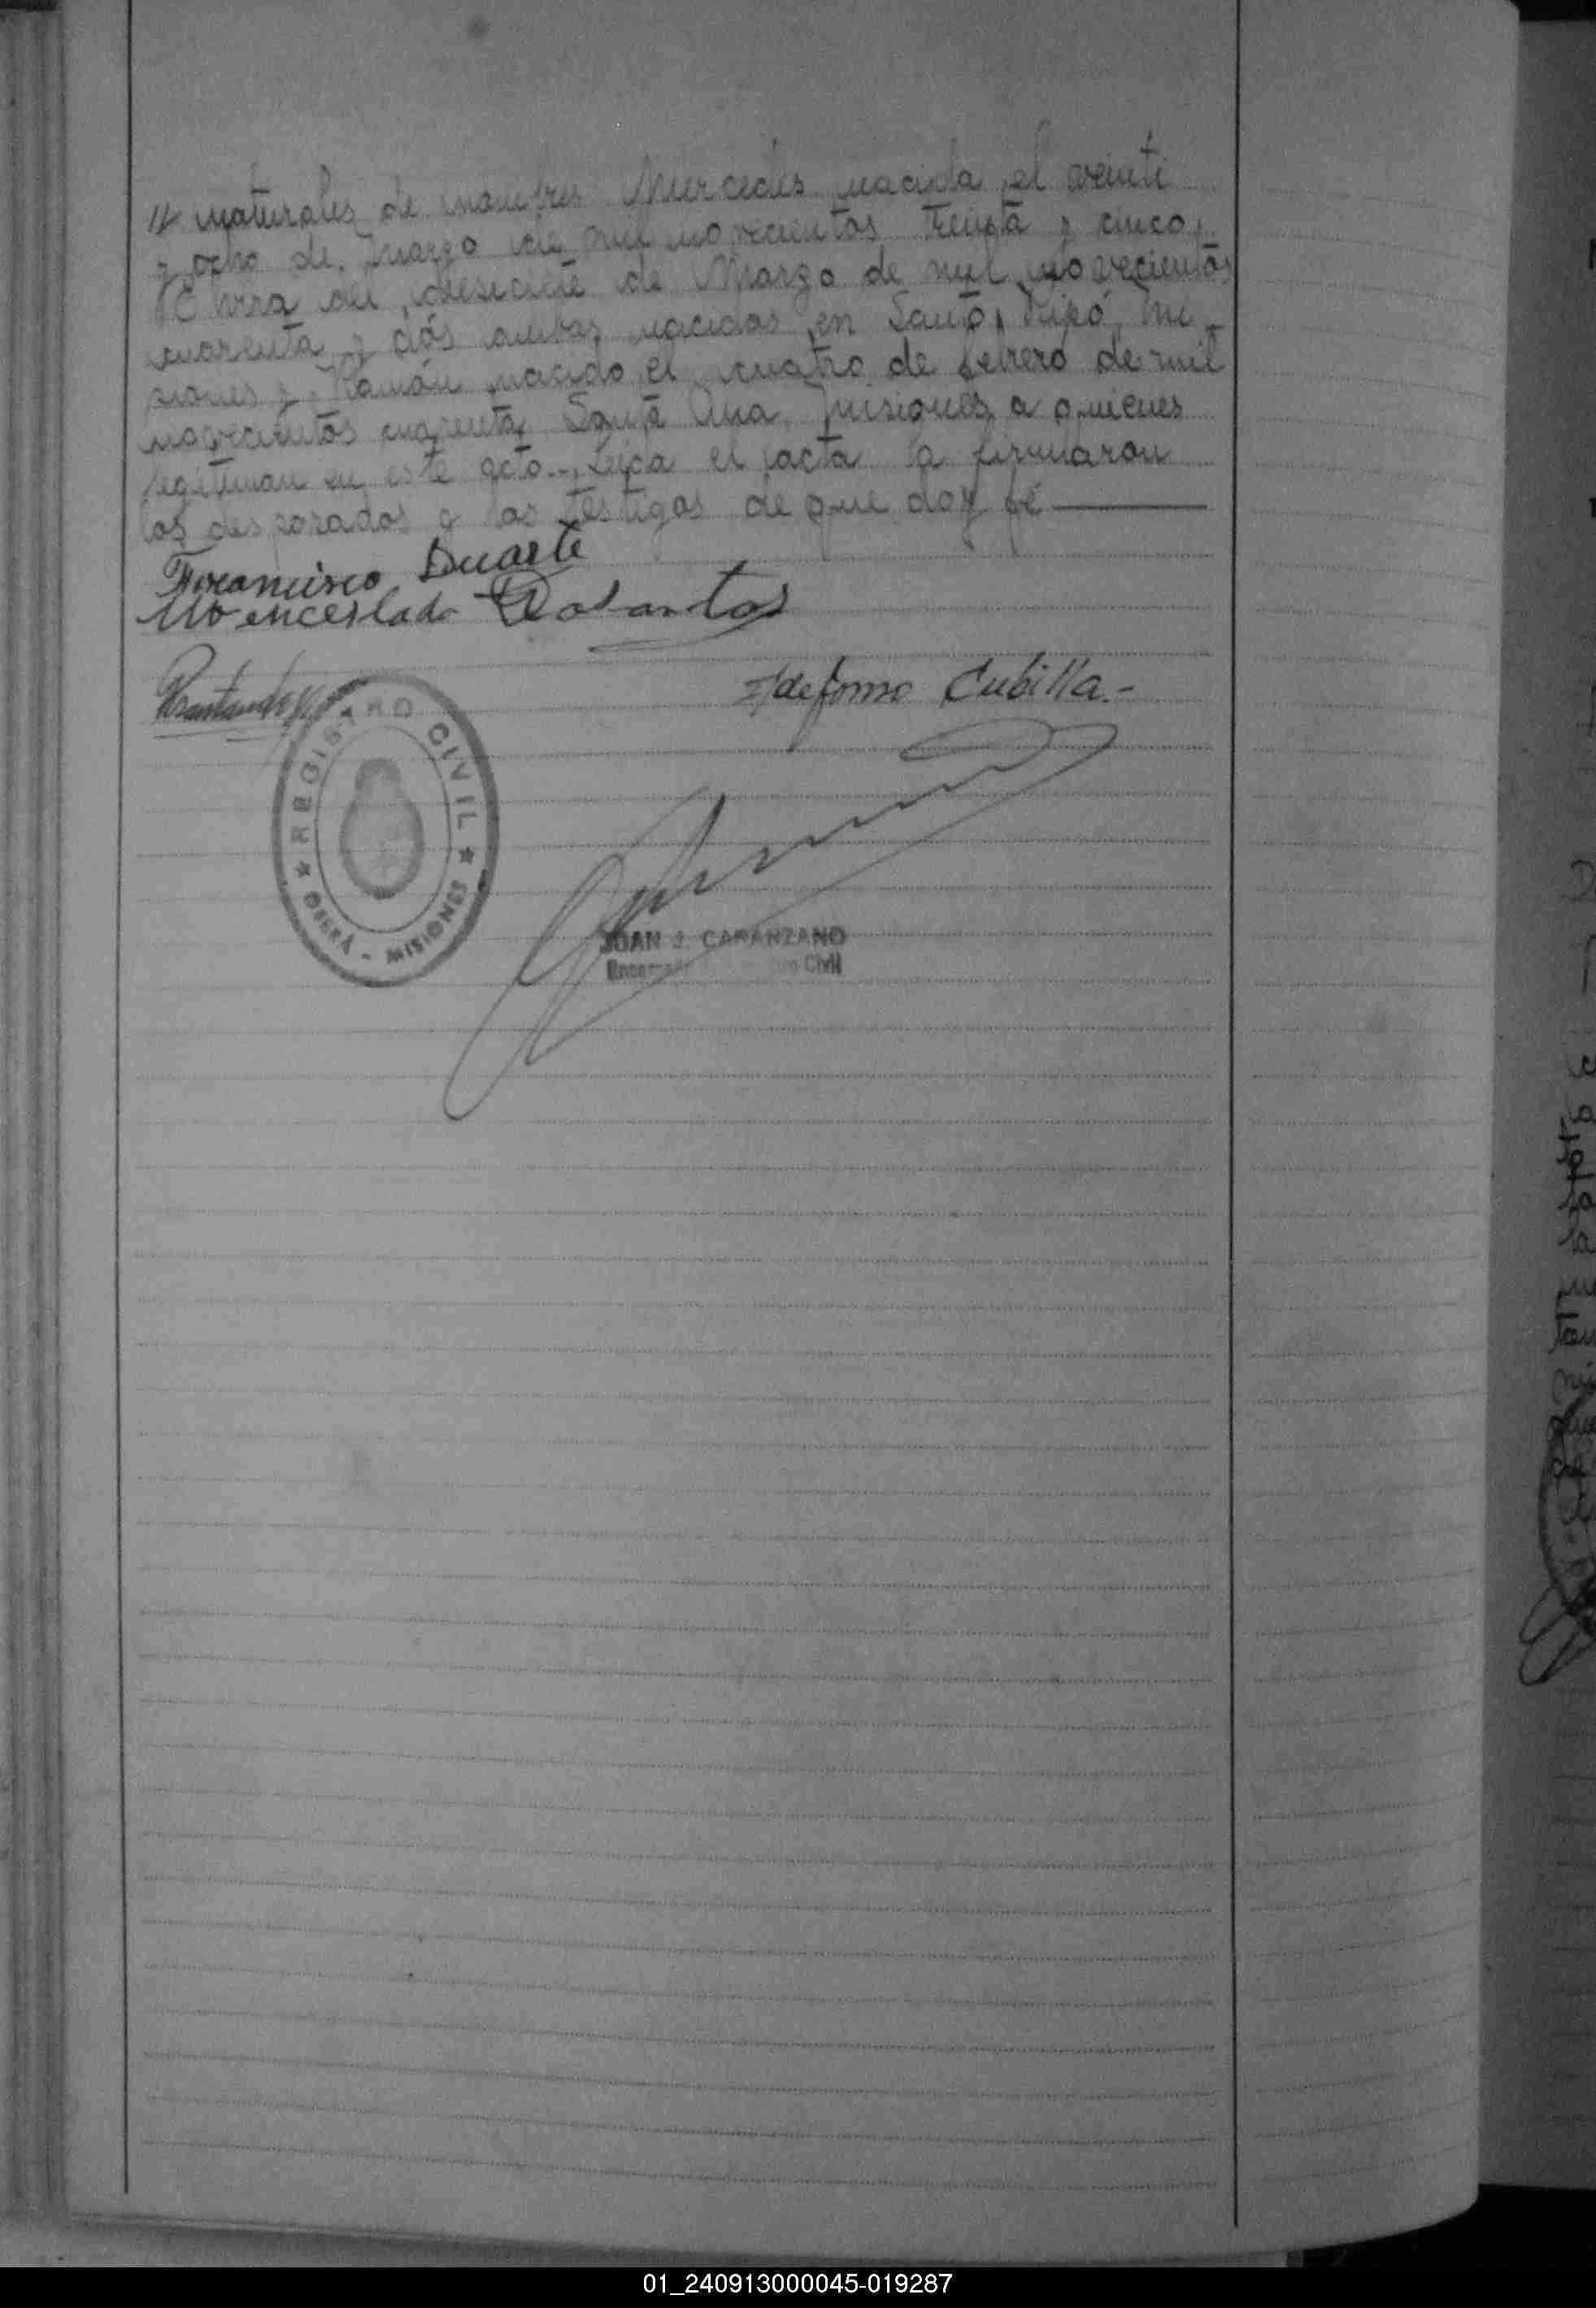 naturales de nombres Mercedes nacida el veinti
y ocho de Marzo de mil novecientos treinta y cinco,
el diesisiete de Marzo de mil novecientos
cuarenta y dós ambas nacidas en Santo Pipó, Mi-
siones y Ramón nacido el cuatro de febrero de mil
novecientos cuarenta, Santa Ana, Misiones, a quienes
legitiman en este acto.- Leida el acta la firmaron
los desposados y los testigos de que doy fé
Francisco Duarte
Wenceslado Dosantos
Ildefonso Cubilla.-
REGISTRO CIVIL
OBERÁ - MISIONES
JUAN J. CAPANZANO
Civil
01_240913000045-019287